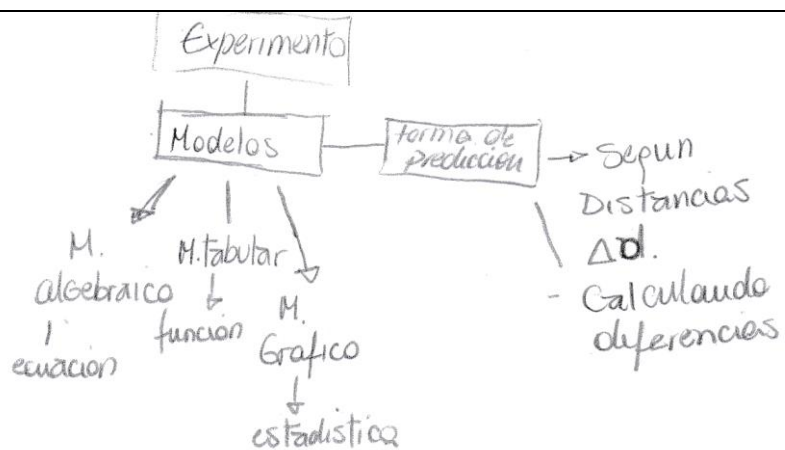 Experimento
Modelos
forma de
predicción
Segun
Distancias
Δd.
- Calculando
diferencias
M.
algebraico
ecuación
M. tabular
función
M.
Grafico
estadistica